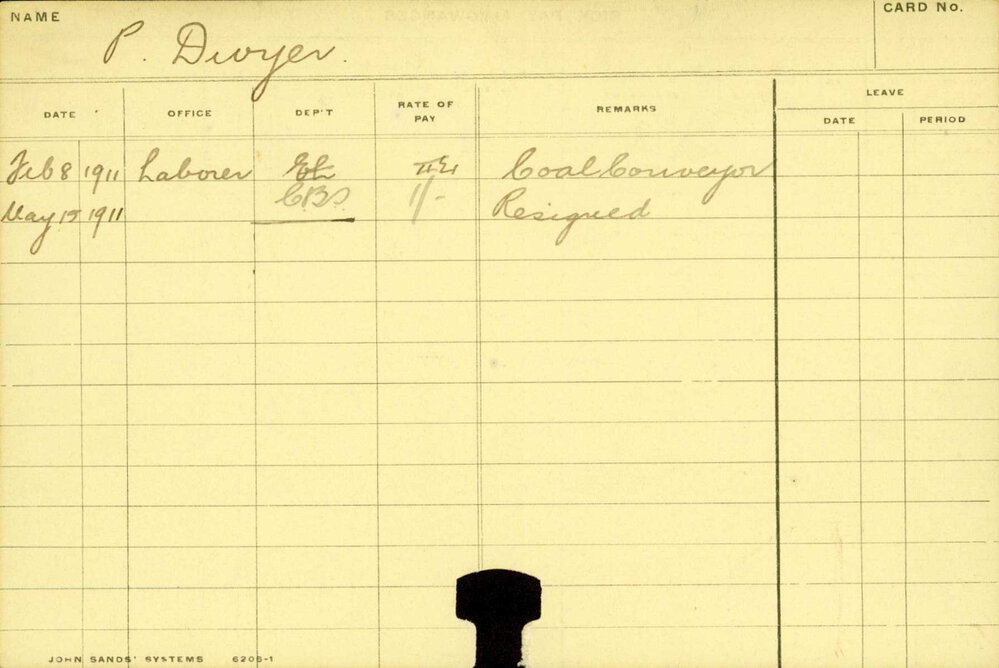 NAME P. Dwyer. CARD No.
DATE OFFICE DEP'T RATE OF PAY REMARKS LEAVE
DATE PERIOD
Feb 8 1911 Laborer Coal Conveyor
May 15 1911 CBS 11/- Resigned
JOHN SANDS' SYSTEMS 6206-1